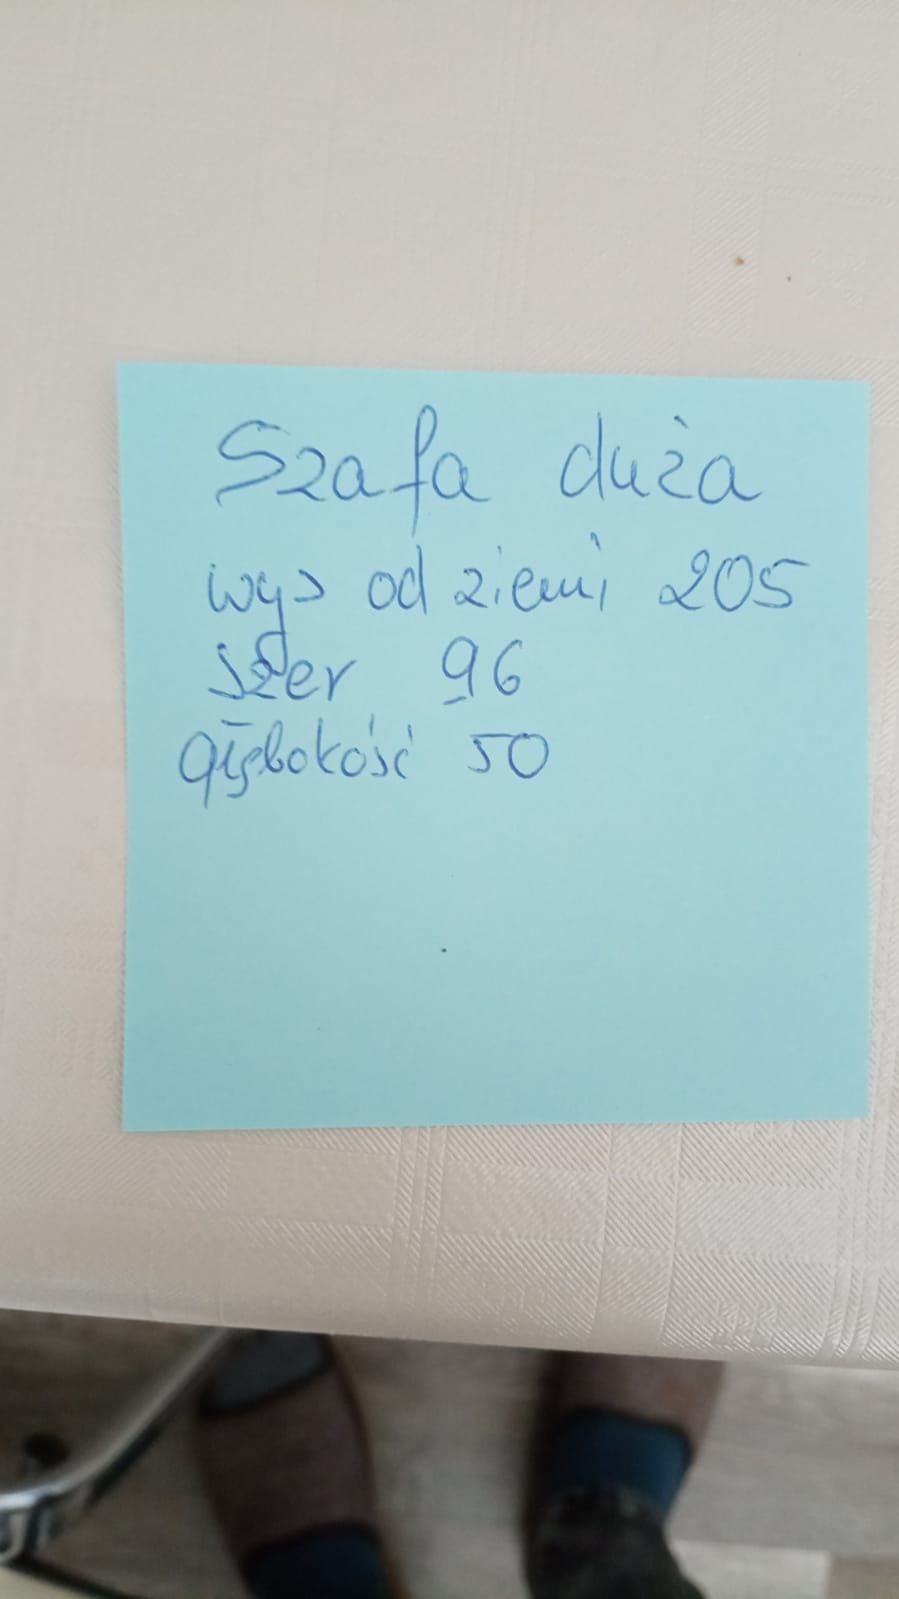 Szafa duża
wys od ziemi 205
szer 96
głębokość 50